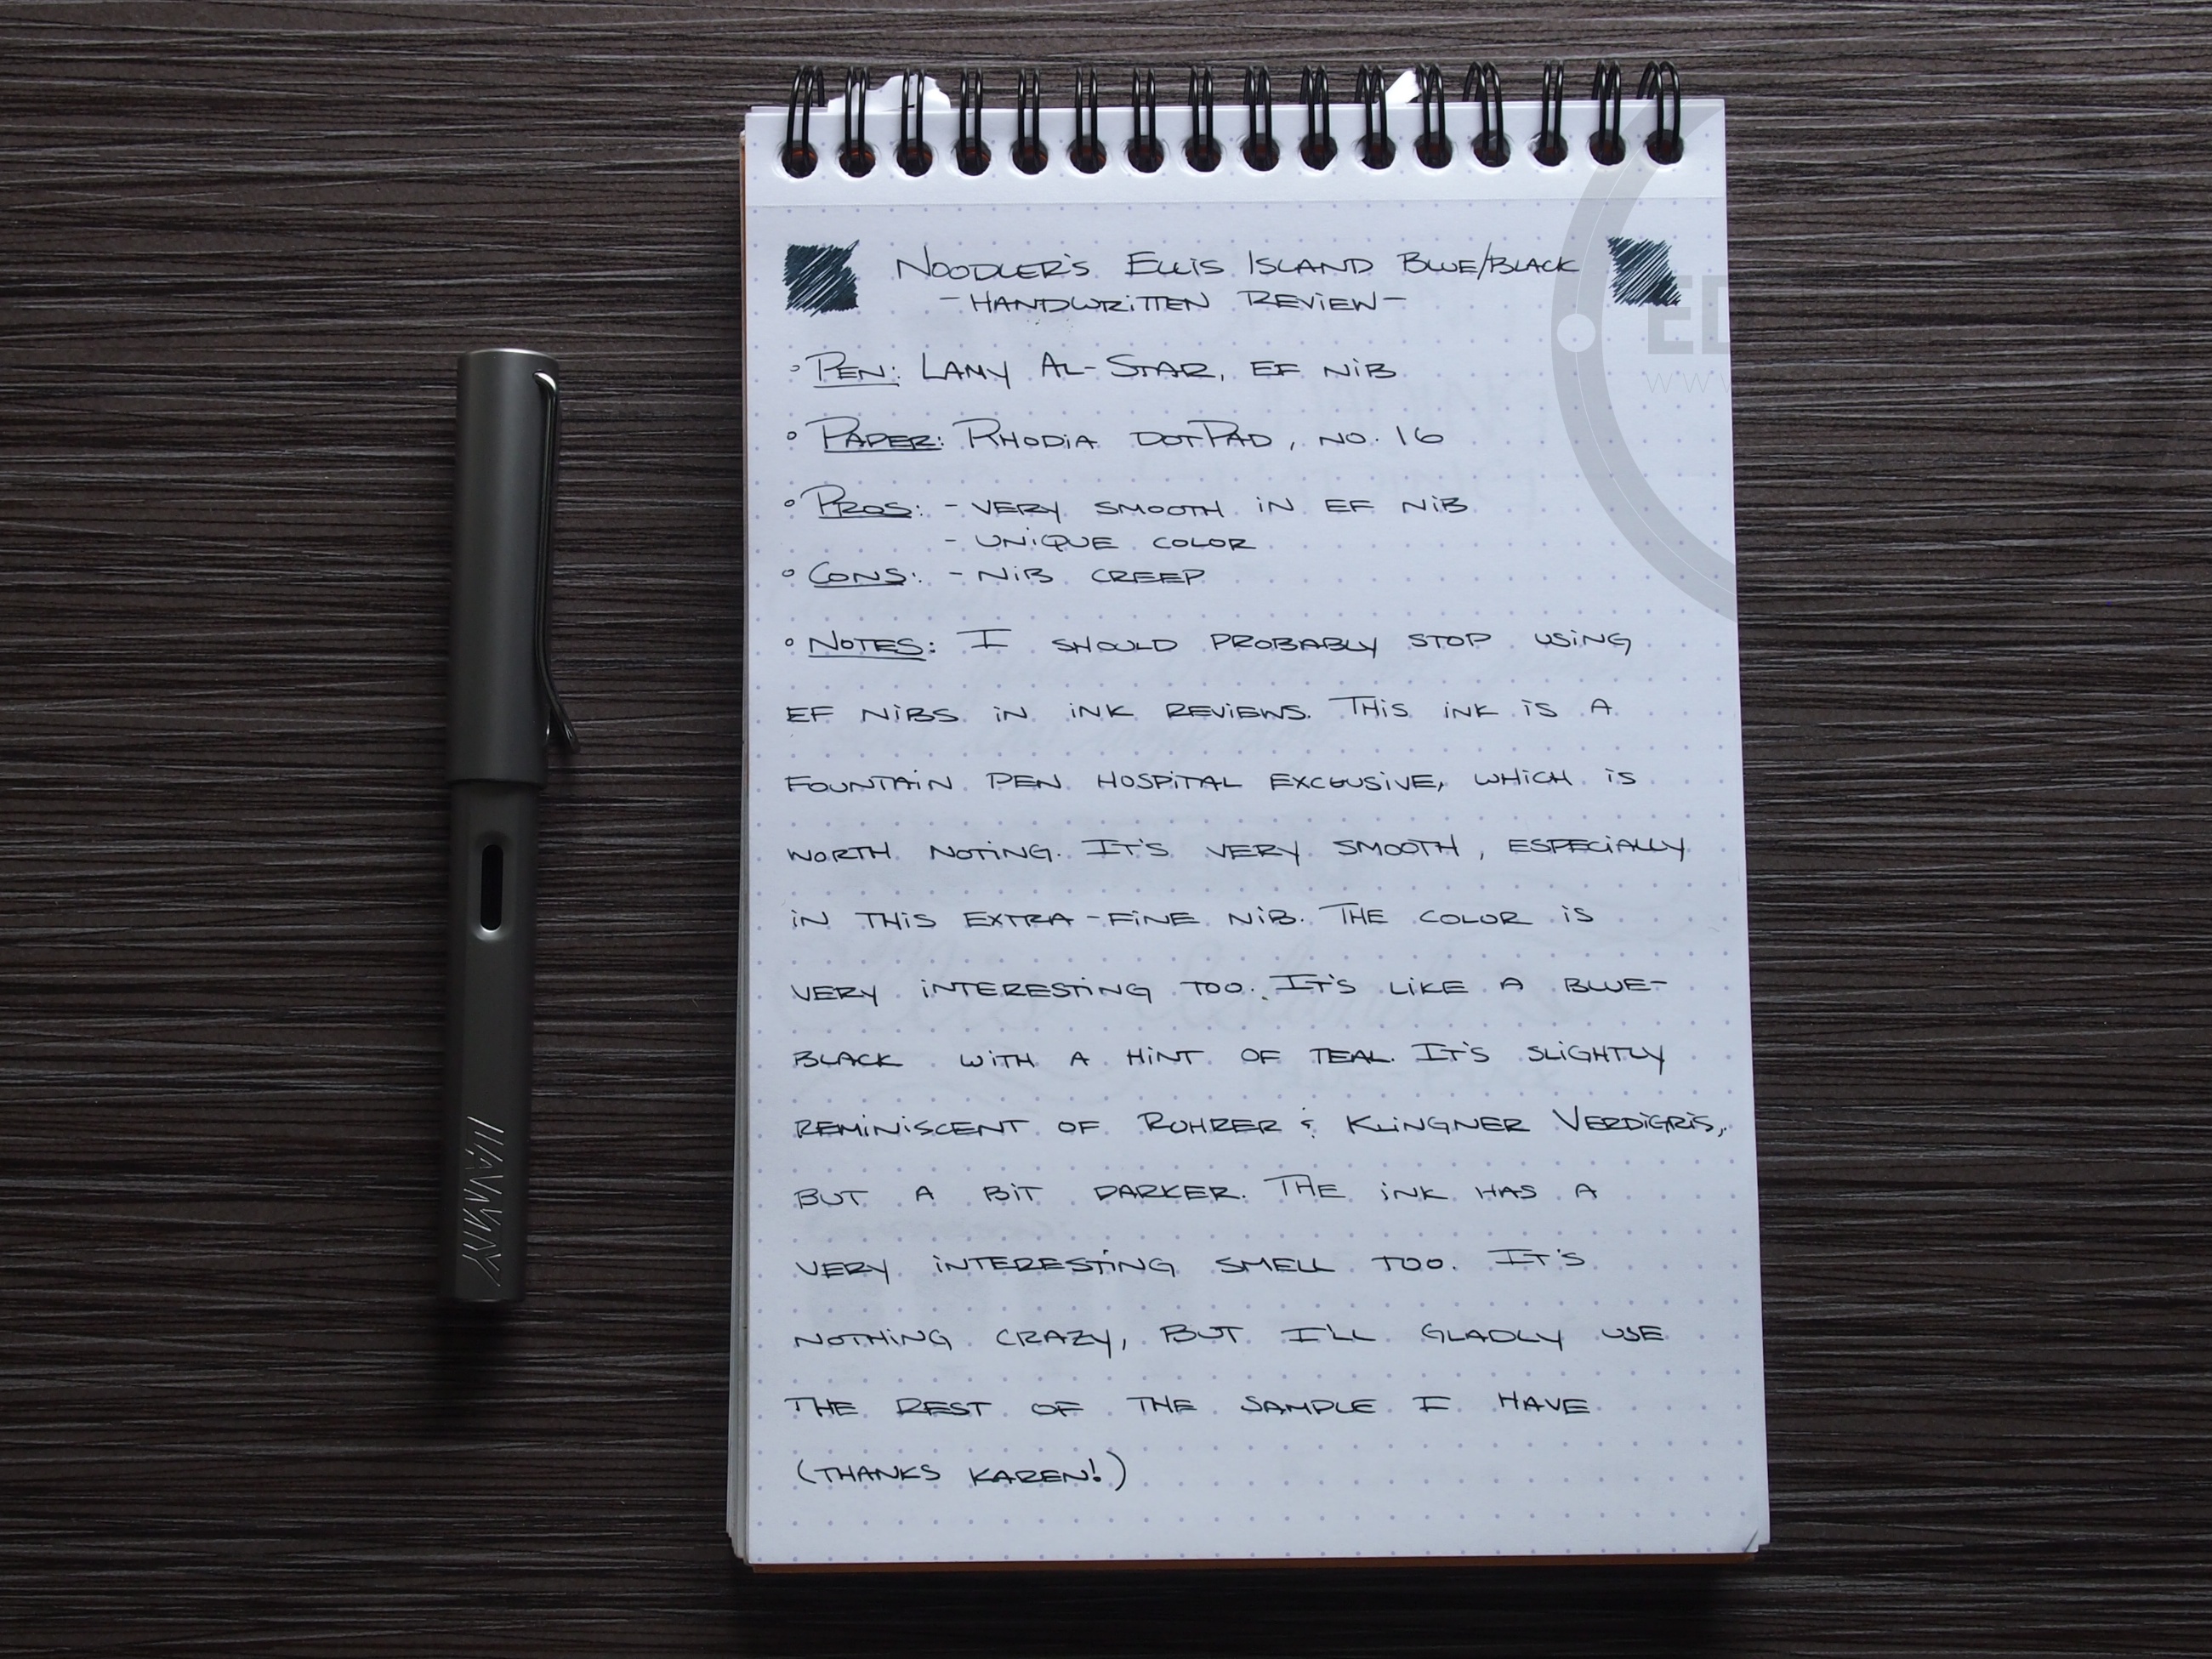 Noodler's Ellis Island Blue/Black
- Handwritten Review -
Pen: Lamy Al-Star, EF nib
Paper: Rhodia dotPad, no. 16
Pros: - very smooth in EF nib
- unique color
Cons: - nib creep
Notes: I should probably stop using
EF nibs in ink reviews. This ink is a
Fountain Pen Hospital exclusive, which is
worth noting. It's very smooth, especially
in this extra-fine nib. The color is
very interesting too. It's like a blue-
black with a hint of teal. It's slightly
reminiscent of Rohrer & Klingner Verdigris,
but a bit darker. The ink has a
very interesting smell too. It's
nothing crazy, but I'll gladly use
the rest of the sample I have
(Thanks Karen!)
LAMY
ED
WWW